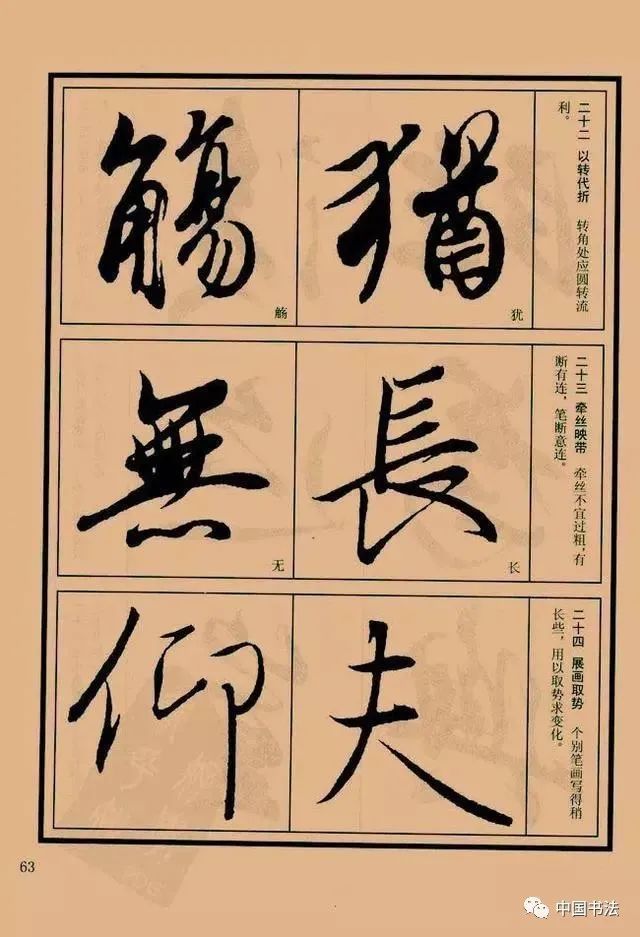 二十二 以转代折 转角处应圆转流
利。
猶
犹
觴
觞
二十三 牵丝映带 牵丝不宜过粗,有
断有连,笔断意连。
長
长
無
无
二十四 展画取势 个别笔画写得稍
长些,用以取势求变化。
夫
仰
63
中国书法